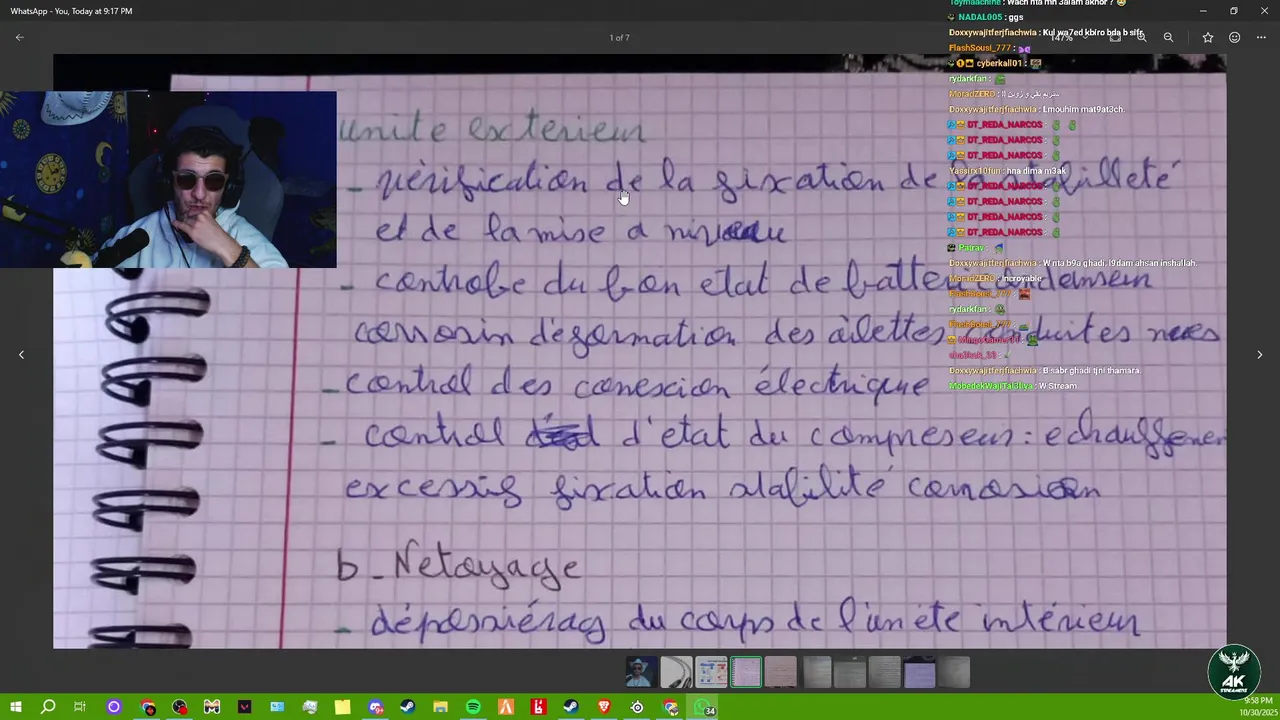 WhatsApp - You, Today at 9:17 PM
1 of 7
147%
NADAL005 : ggs
Doxxywajitferjfiachwia : Kul wa7ed kbiro bda b sifr.
FlashSousi_777 :
cyberkall01 :
rydarkfan :
MoradZERO :
Doxxywajitferjfiachwia : Lmouhim mat9at3ch.
DT_REDA_NARCOS :
DT_REDA_NARCOS
DT_REDA_NARCOS
Yassirx10furi : hna dima m3ak
DT_REDA_NARCOS
DT_REDA_NARCOS
DT_REDA_NARCOS
DT_REDA_NARCOS
Doxxywajitferjfiachwia : W nta b9a ghadi, l9dam ahsan inshallah.
MoradZERO : Incroyable
rydarkfan :
Doxxywajitferjfiachwia : B sabr ghadi tjni thamara.
MobedekWajiTal3liya : W Stream
unite exterieur
- vérification de la fixation de
et de la mise a niveau
- controbe du bon etat de
corrosin déformation des ailettes conduites
- control des conexion électrique
- control d'etat du compreseur : echauffemen
excessif fixation stabilité corrosion
b - Netoyage
- déposriérag du corps de l'unété intérieur
AK
STREAMERS
34
9:58 PM
10/30/2025